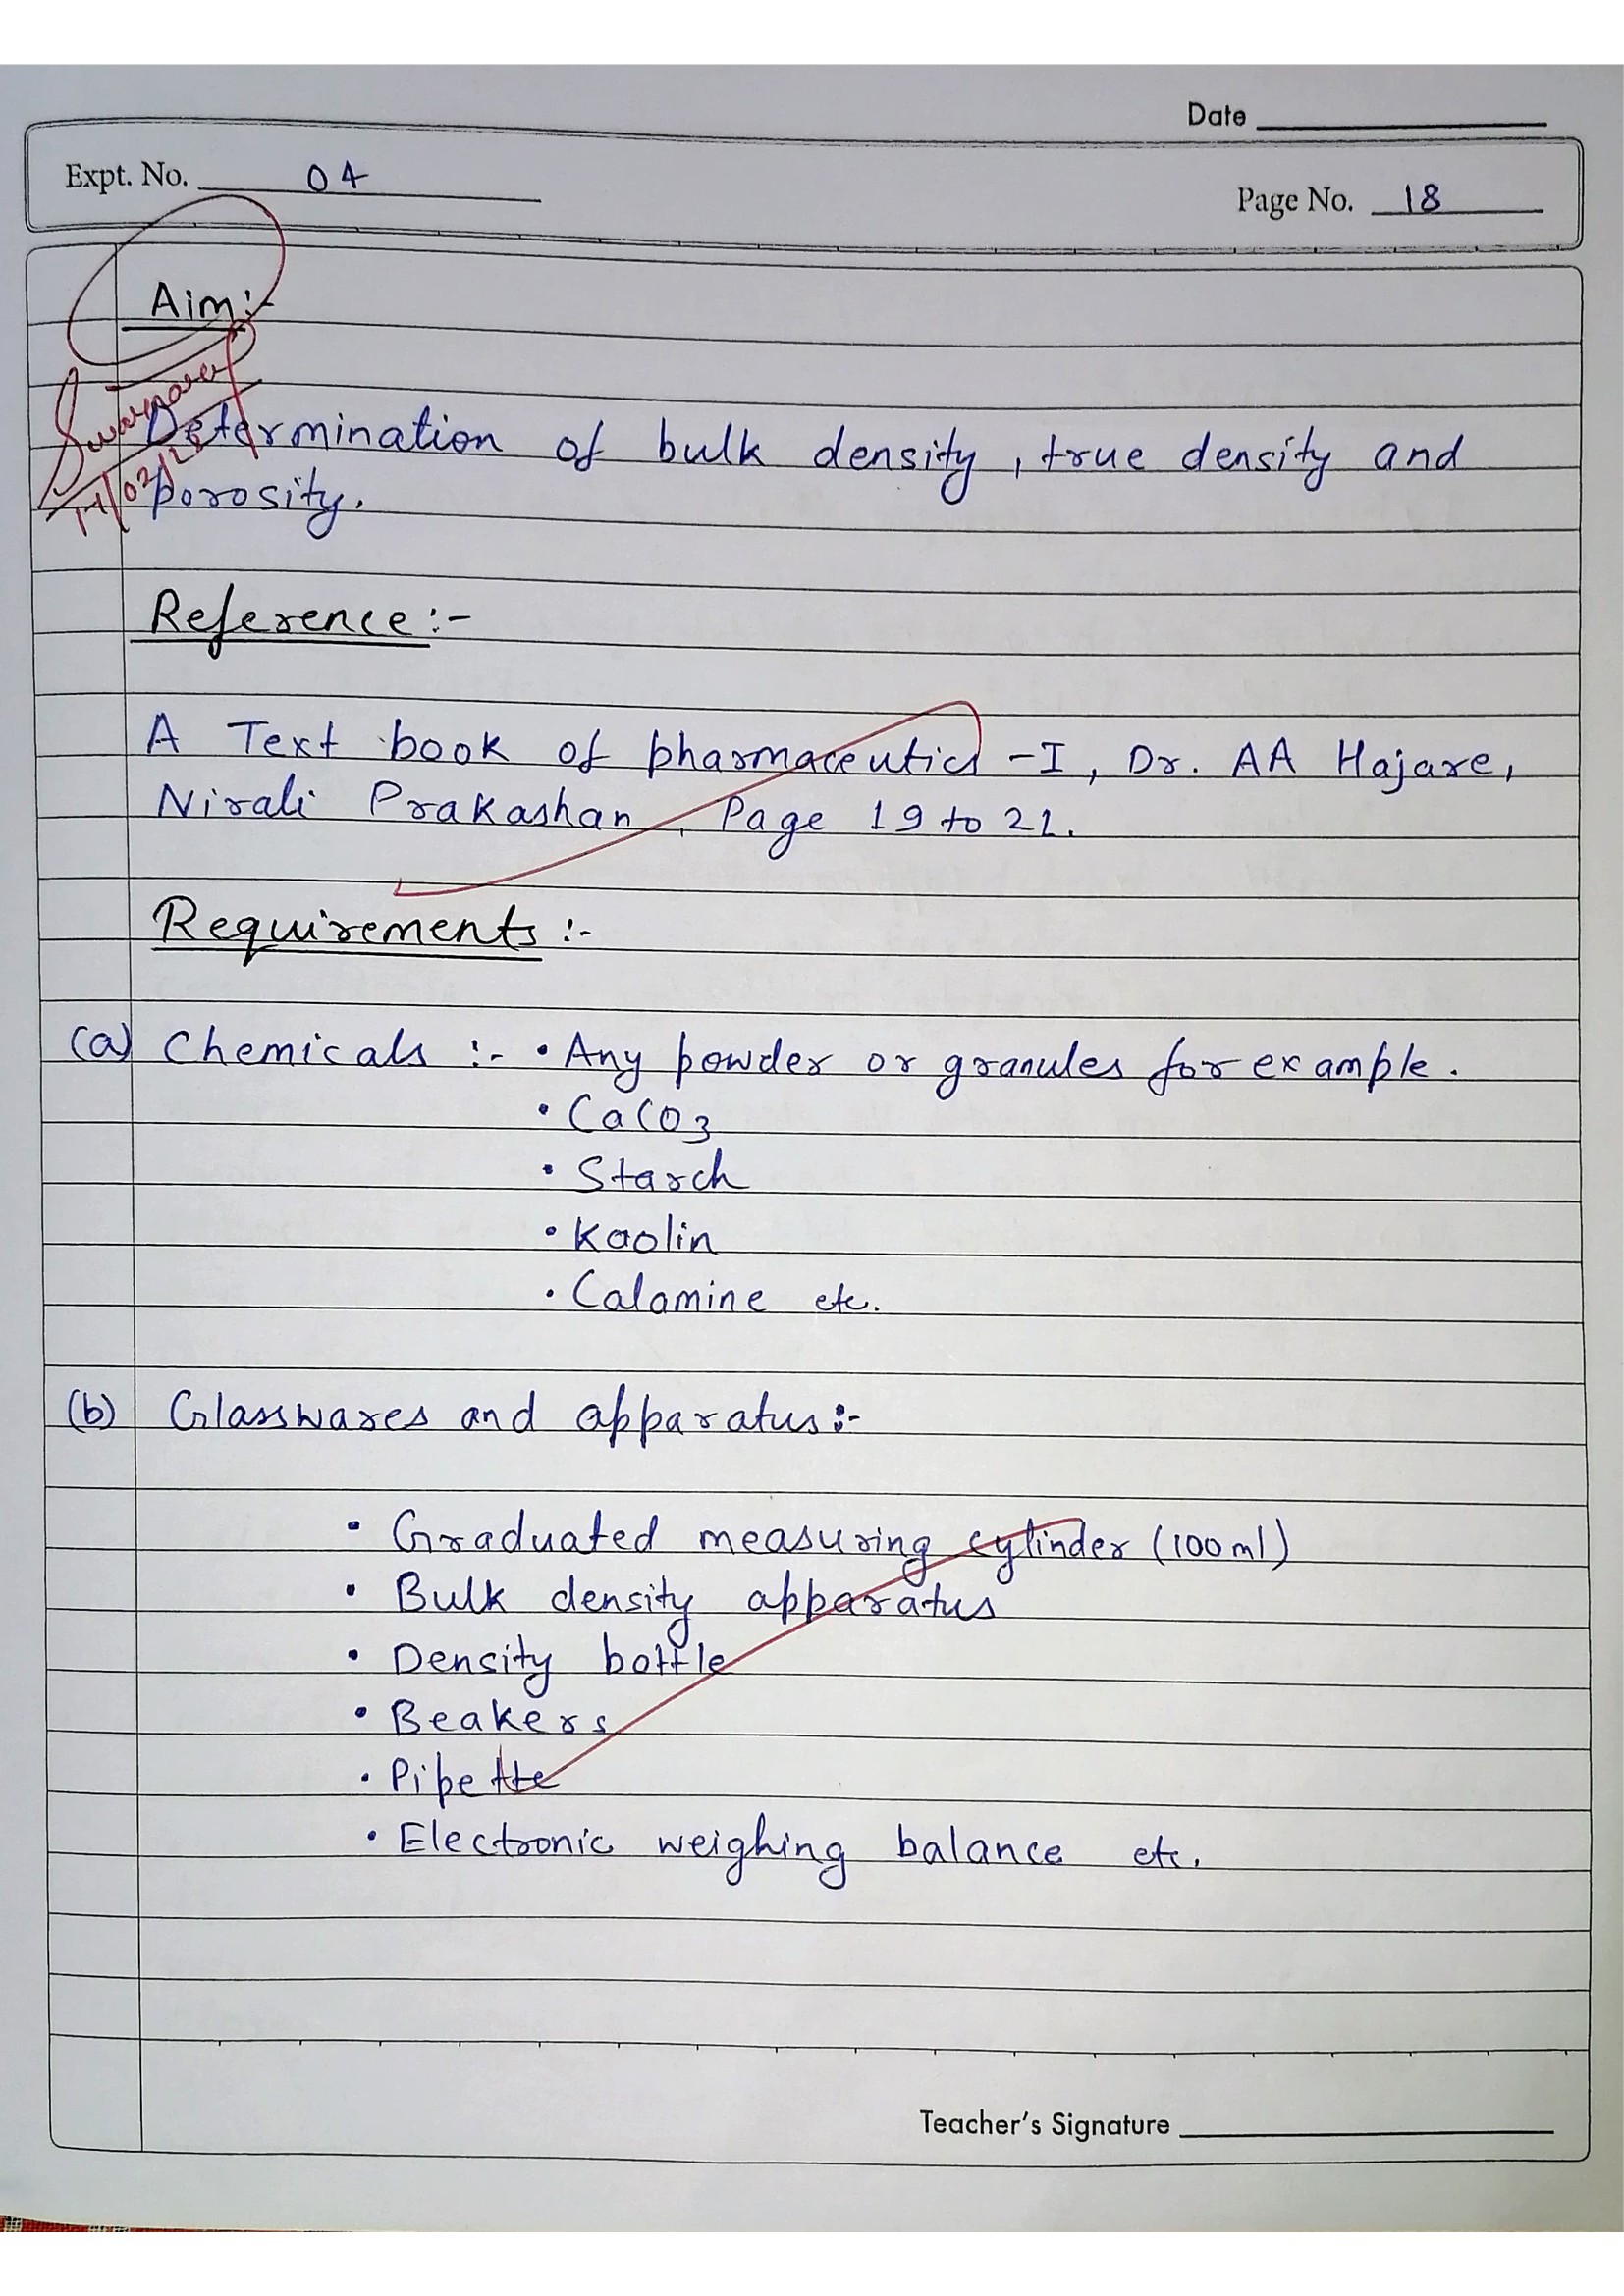 Date
Expt. No. 04
Page No. 18
Aim:-
Determination of bulk density, true density and
porosity.
Reference:-
A Text book of pharmaceutics -I, Dr. AA Hajare,
Nirali Prakashan, Page 19 to 21.
Requirements :-
(a) Chemicals :- • Any powder or granules for example.
• CaCO3
• Starch
• Kaolin
• Calamine etc.
(b) Glasswares and apparatus:-
• Graduated measuring cylinder (100ml)
• Bulk density apparatus
• Density bottle
• Beakers
• Pipette
• Electronic weighing balance etc.
Teacher's Signature